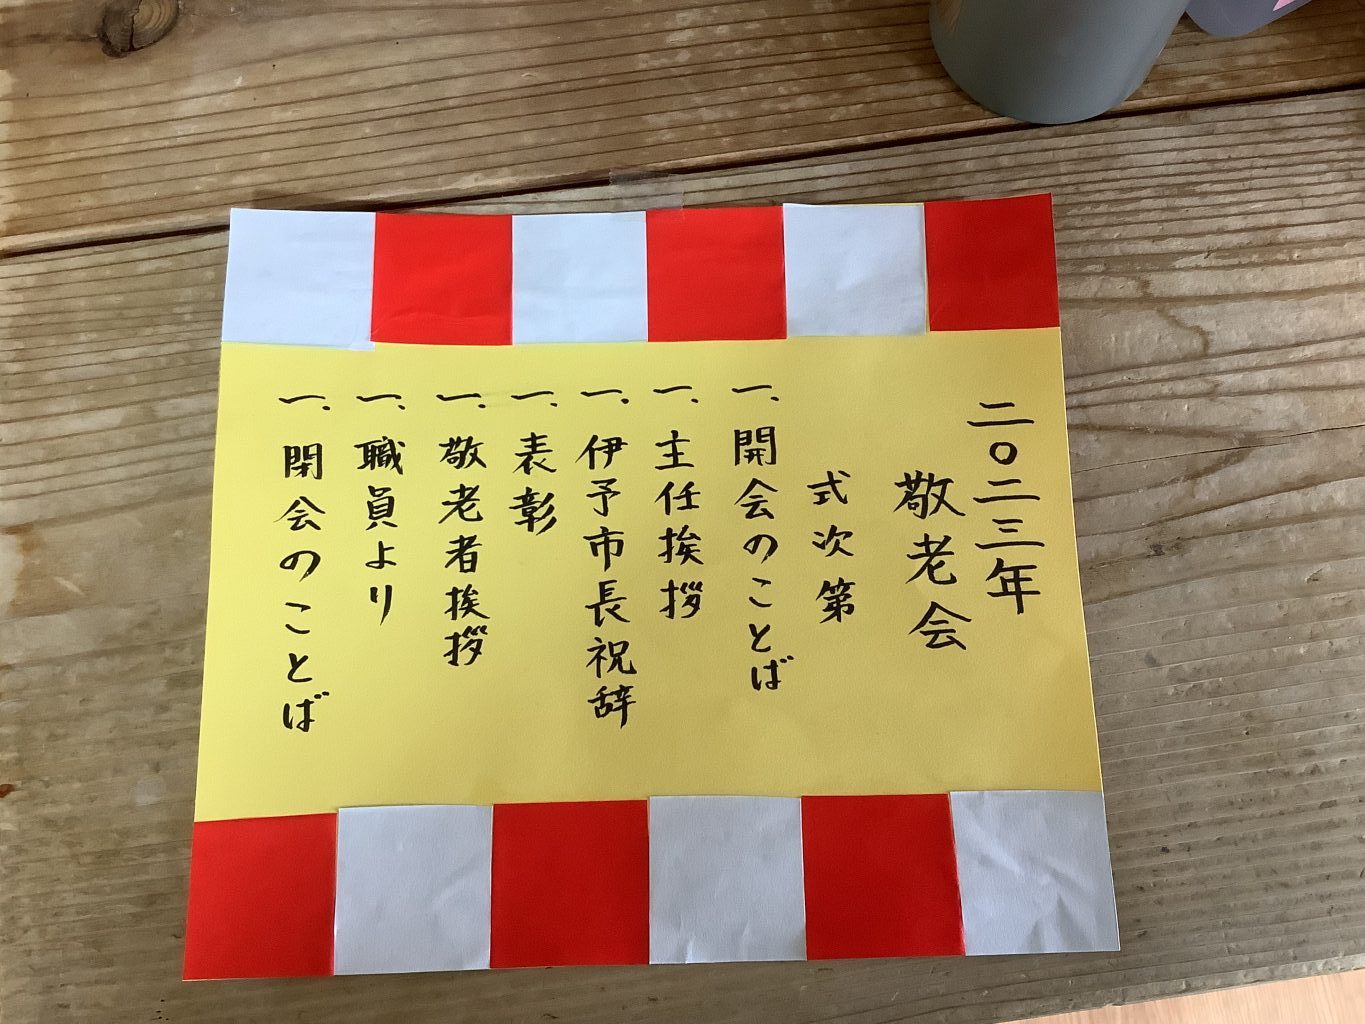 二〇二三年
敬老会
式次第
一、開会のことば
一、主任挨拶
一、伊予市長祝辞
一、表彰
一、敬老者挨拶
一、職員より
一、閉会のことば